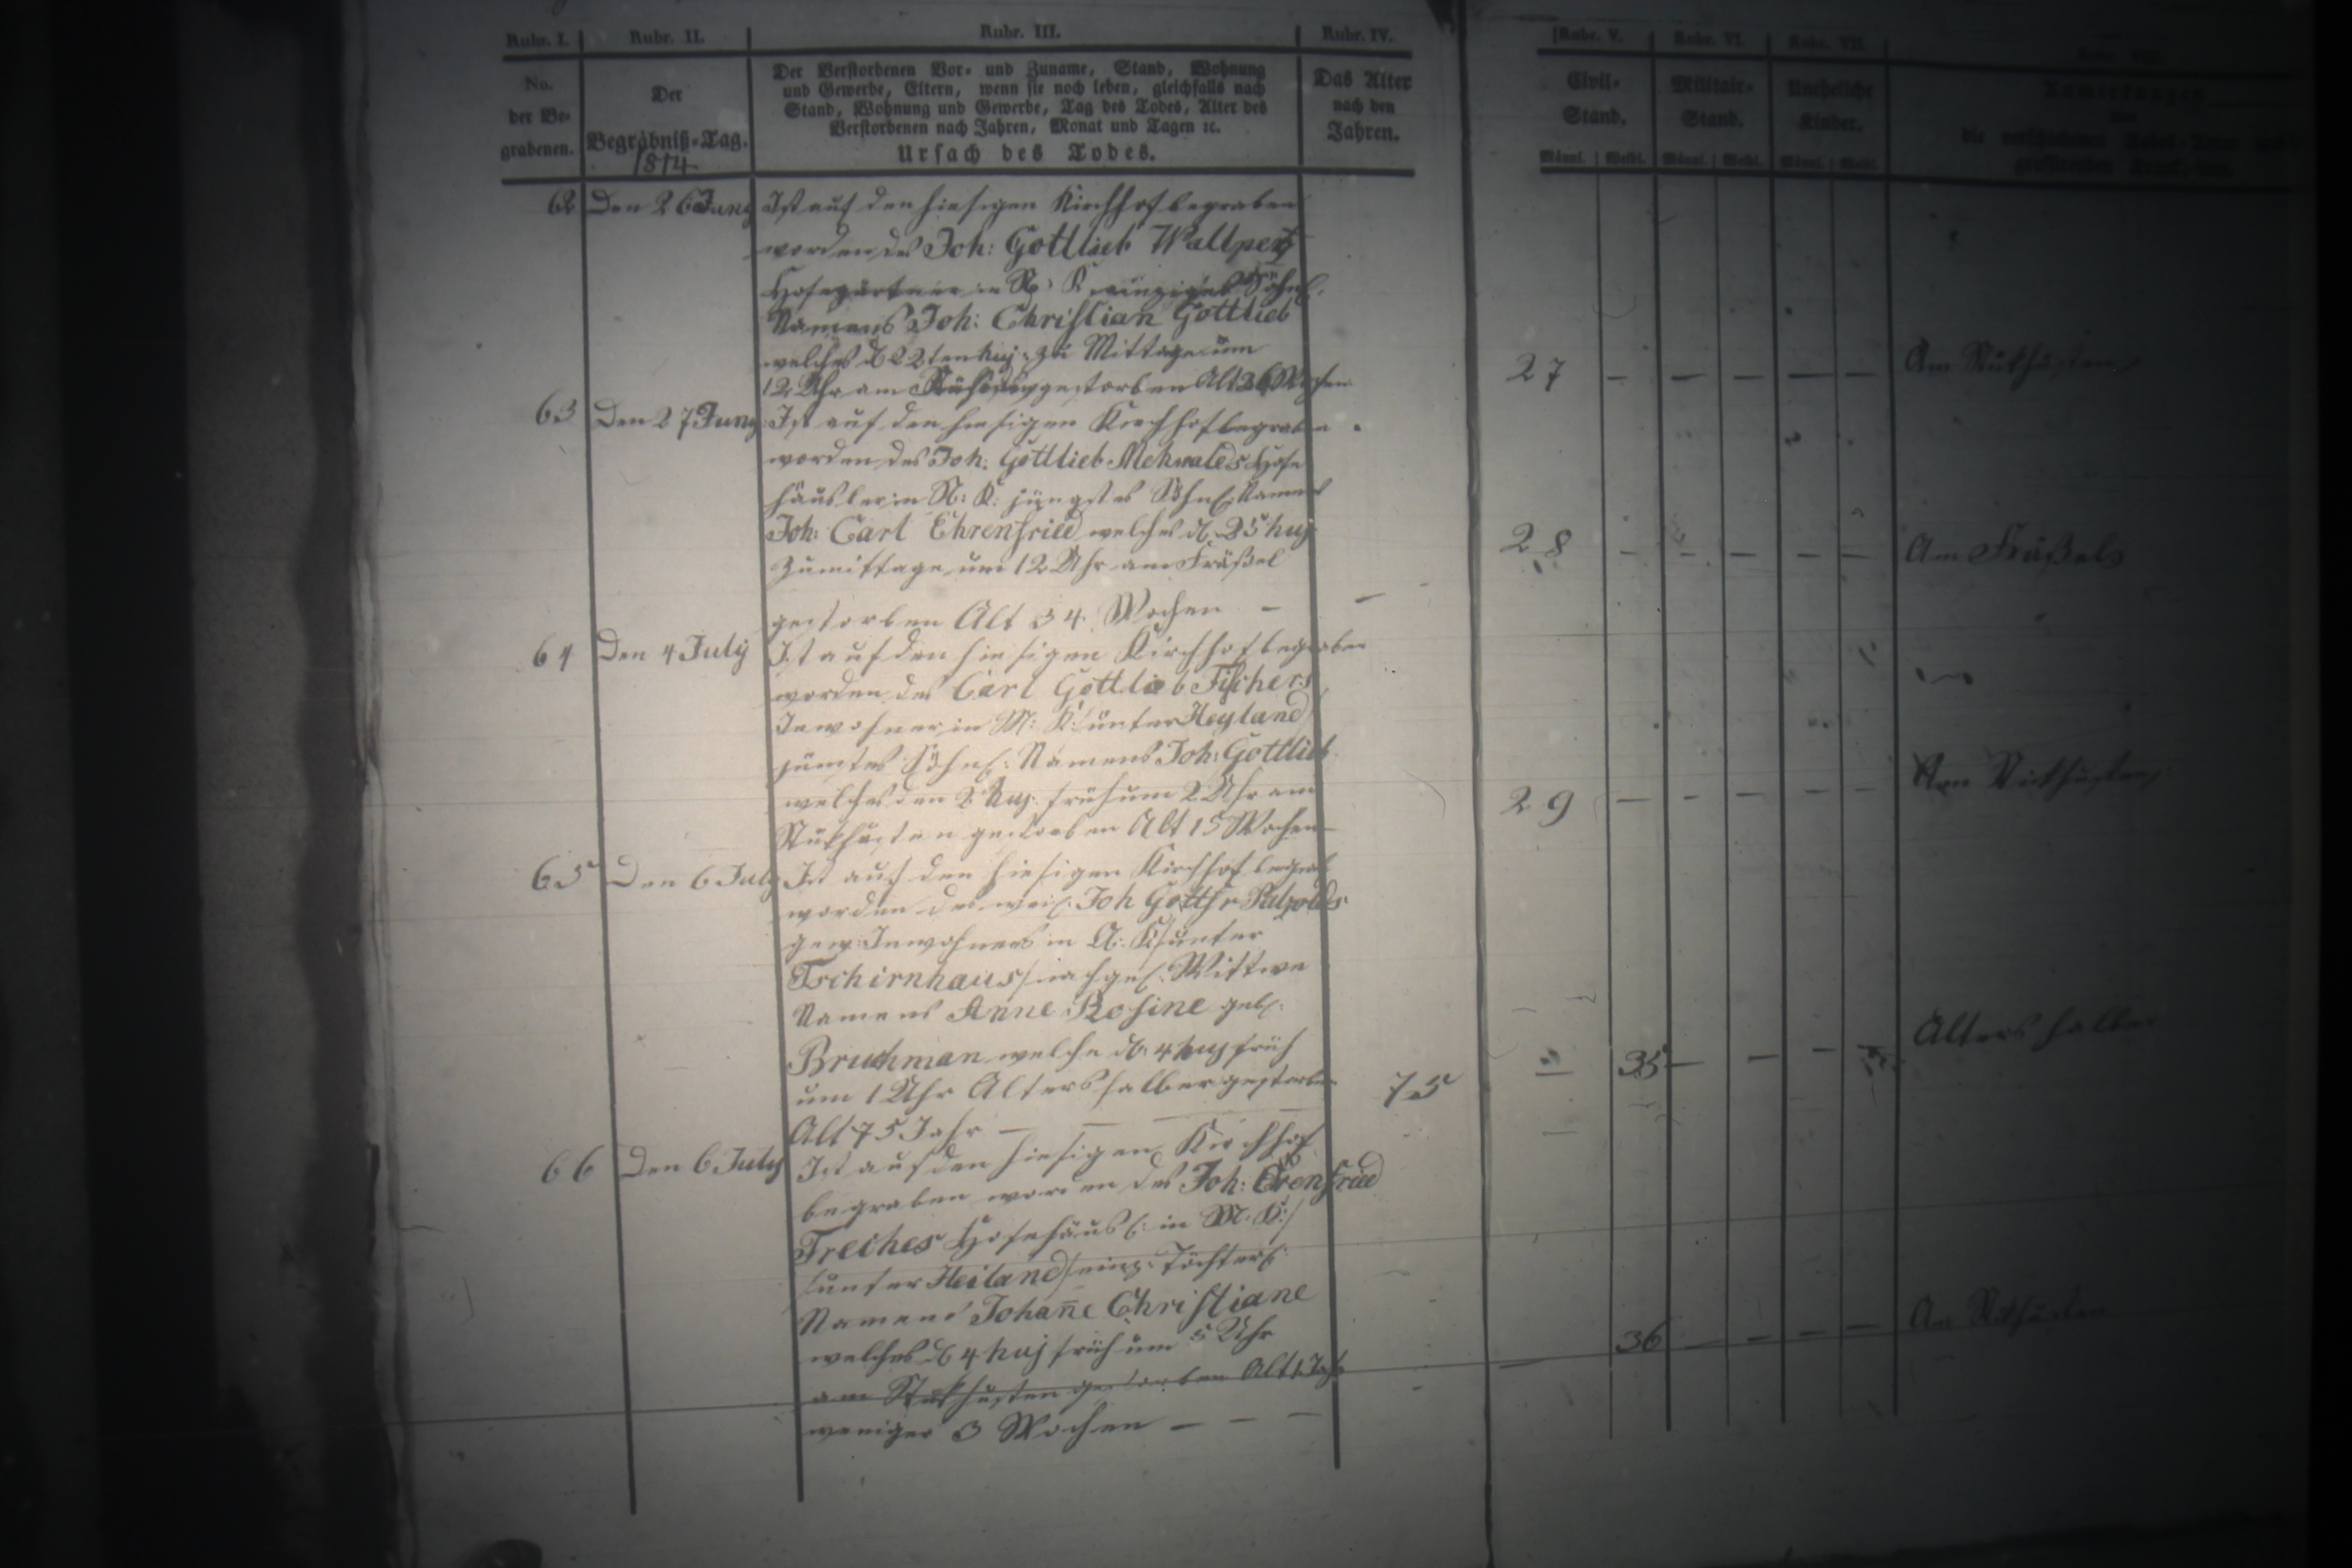 Rubr. I. Rubr. II. Rubr. III. Rubr. IV. Rubr. V. Rubr. VI. Rubr. VII.
No. der Begrabenen.
Der Begräbniß-Tag. 1814
Der Verstorbenen Vor- und Zuname, Stand, Wohnung
und Gewerbe, Eltern, wenn sie noch leben, gleichfalls nach
Stand, Wohnung und Gewerbe, Tag des Todes, Alter des
Verstorbenen nach Jahren, Monat und Tagen ꝛc.
Ursach des Todes.
Das Alter
nach den
Jahren.
Civil-
Stand.
Militair-
Stand.
Uneheliche
Kinder.
Männl. Weibl. Männl. Weibl. Männl. Weibl.
62 Den 26 Juny Ist auf den hiesigen Kirchhof begraben
worden des Joh: Gottlieb
Hofegärtner in N: K einziges Söhnl.
Namens Joh: Christian Gottlieb
welches d 22ten huj. zu Mittage um
12 Uhr am gestorben Alt 26 Wochen
27 — — — — — Am Stükhusten
63 Den 27 Juny Ist auf den hiesigen Kirchhof begraben
worden des Joh: Gottlieb Mehwalds Hofe
häusler in N: K: jüngstes Söhnl. Namens
Joh: Carl Ehrenfried welches d. 25 huj
zu mittage um 12 Uhr am Fräßel
gestorben Alt 34 Wochen —
28 — — — — — Am Fräßels
64 Den 4 July Ist auf den hiesigen Kirchhof begraben
worden des Carl Gottlieb Fischers
Inwohner in M: K: unter Heyland
Söhnl: Namens Joh: Gottlieb
welches den 2 huj. früh um 2 Uhr am
Stükhusten gestorben Alt 15 Wochen —
29 — — — — — Am Stükhusten
65 Den 6 July Ist auf den hiesigen Kirchhof begrab
worden des weil. Joh Gottfr
gew: Inwohners in K/ unter
Tschirnhaus/ nachgel: Wittwe
Namens Anne Rosine geb.
Bruchman welche d. 4 huj früh
um 1 Uhr Altershalber gestorben
Alt 75 Jahr — — —
75 — 35 — — — — Altershalber
66 Den 6 July Ist auf den hiesigen Kirchhof
begraben worden des Joh: Ehrenfried
Freches Hofehäusl: in M. K:/
/unter Heiland/ einz: Töchterl:
Namens Johañe Christiane
welches d 4 huj früh um 5 Uhr
am Stükhusten gestorben Alt 1 Jahr
weniger 3 Wochen — — —
— 36 — — — — Am Stükhusten